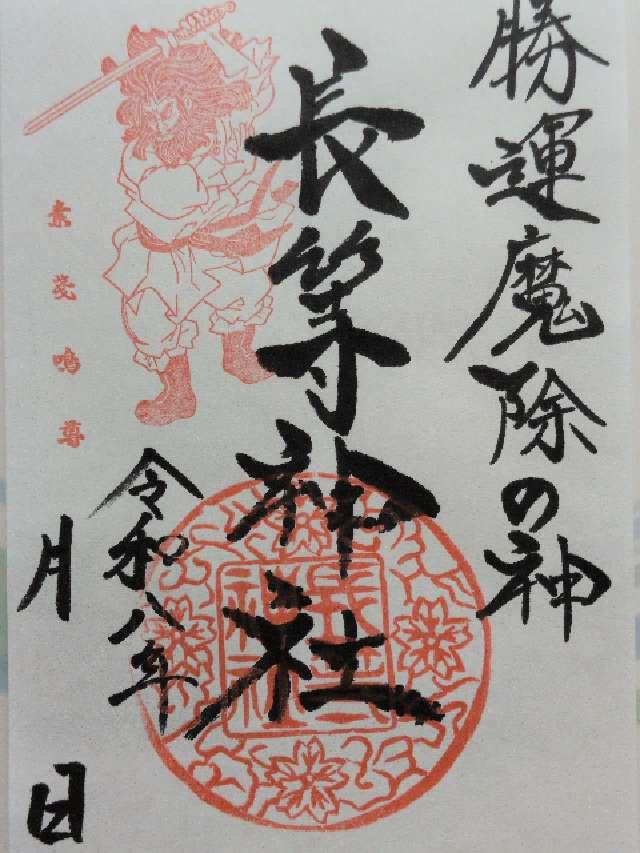 勝運魔除の神
長等神社
素戔嗚尊
令和八年
月
日